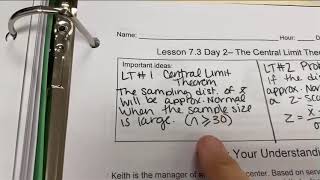 Name: Hour: Da
Lesson 7.3 Day 2– The Central Limit Theo
Important ideas:
LT#1 Central Limit
Theorem
The sampling dist. of x̄
will be approx. Normal
when the sample size
is large. (n ≥ 30)
LT#2 Prob
if the di
approx. Nor
a z-sco
z = x -
Your Understandin
Keith is a manager center. Based on